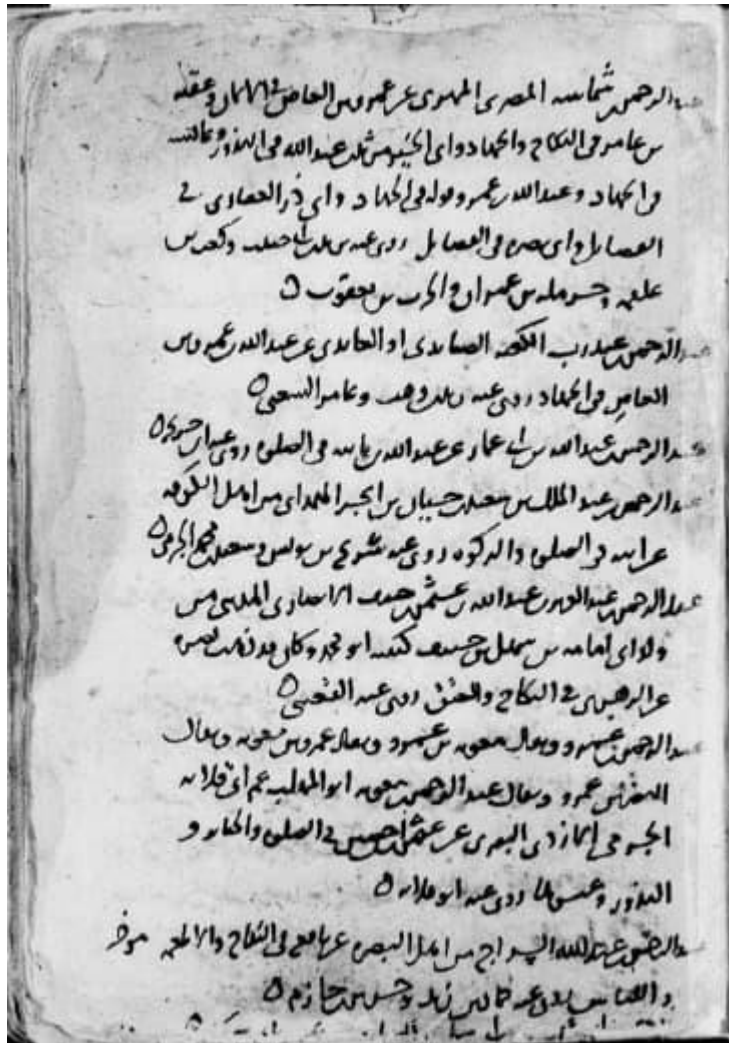 عبد الرحمن بن شماسه المصرى المهرى عن عمرو بن العاص فى الايمان وعقبه
بن عامر فى النكاح والجهاد وابى الخير مرثد بن عبد الله فى النذور وعائشه
فى الجهاد وعبد الله بن عمرو قوله فى الجهاد وابى ذر الغفارى فى
الفضايل وابى بصره فى الفضايل روى عنه يزيد بن ابى حبيب وكعب بن
علقمه وحرمله بن عمران والحرث بن يعقوب
عبد الرحمن بن عبد رب الكعبه الصايدى او العايدى عن عبد الله بن عمرو بن
العاص فى الجهاد روى عنه زيد بن وهب وعامر الشعبى
عبد الرحمن بن عبد الله بن ابى عمار عن عبد الله بن بابيه فى الصلوه روى عنه ابن جريج
عبد الرحمن بن عبد الملك بن سعيد بن حيان بن ابجر الهمدانى من اهل الكوفه
عن ابيه فى الصلوه والزكوه روى عنه سريج بن يونس وسعيد بن محمد الجرمى
عبد الرحمن بن عبد العزيز بن عبد الله بن عثمن بن حنيف الانصارى المدينى من
ولد ابى امامه بن سهل بن حنيف كنيته ابو محمد وكان قد ذهب بصره
عن الزهرى فى النكاح والعتق روى عنه القعنبى
عبد الرحمن بن عمرو ويقال معويه بن عمرو ويقال عمرو بن معويه ويقال
النضر بن عمرو ويقال عبد الرحمن بن معويه ابو المهلب عم ابى قلابه
الجرمى الازدى البصرى عن عمران بن حصين فى الصلوه والجنايز و
النذور وعتق روى عنه ابو قلابه
عبد الرحمن بن عبد الله السراج من اهل البصره عن نافع فى النكاح والاطعمه
واللباس روى عنه حماد بن زيد وجرير بن حازم